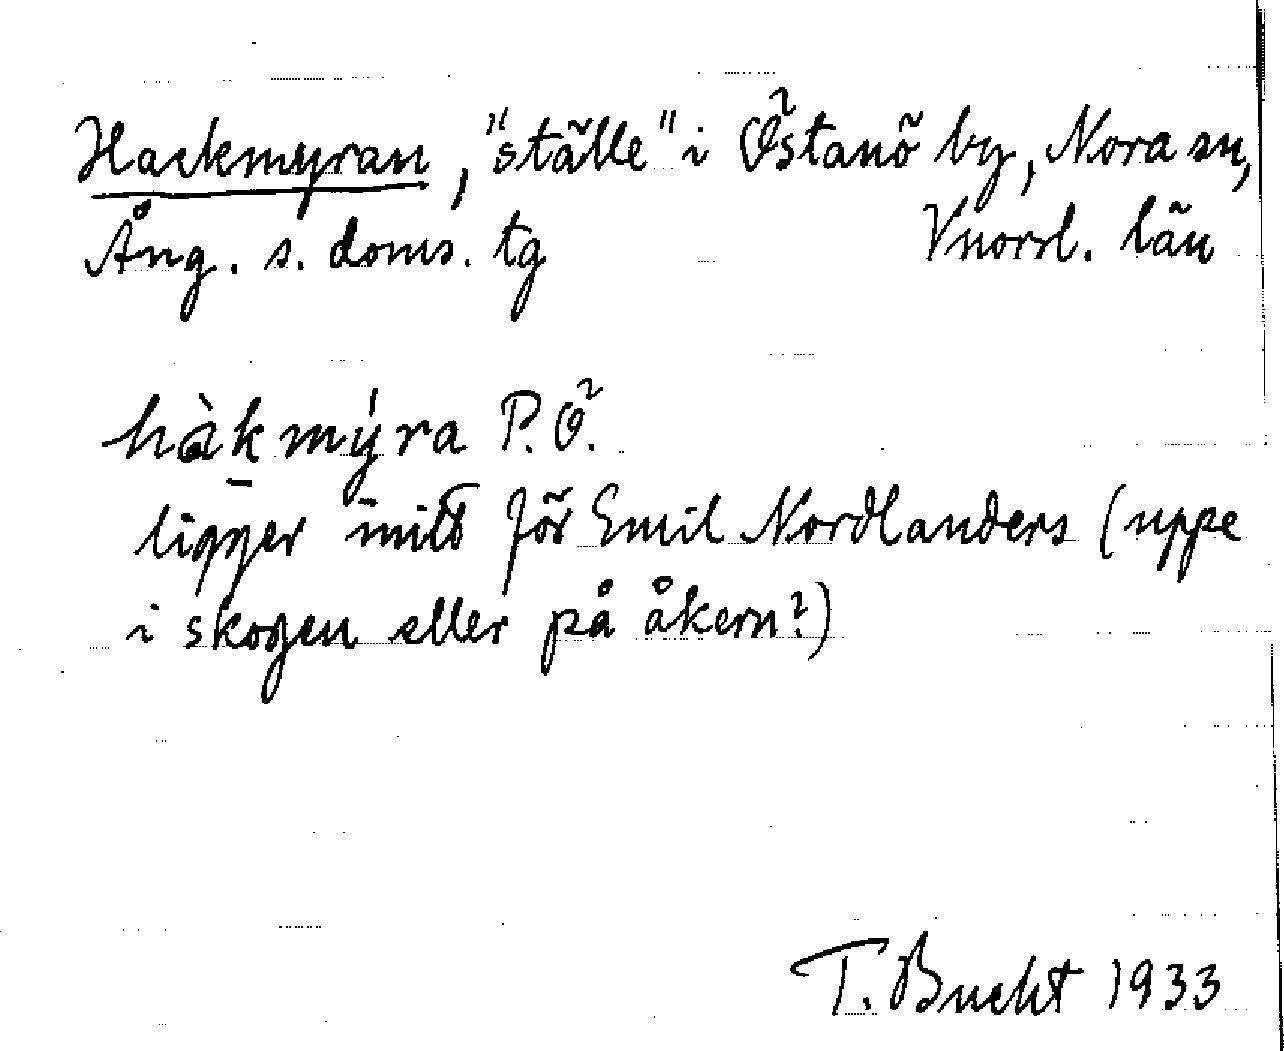 Hackmyran, "ställe" i Östanö by, Nora sn,
Ång. s. doms. tg Vnorrl. län
hàkmýra P.Ö.
ligger mitt för Emil Nordlanders (uppe
i skogen eller på åkern?)
T. Bucht 1933